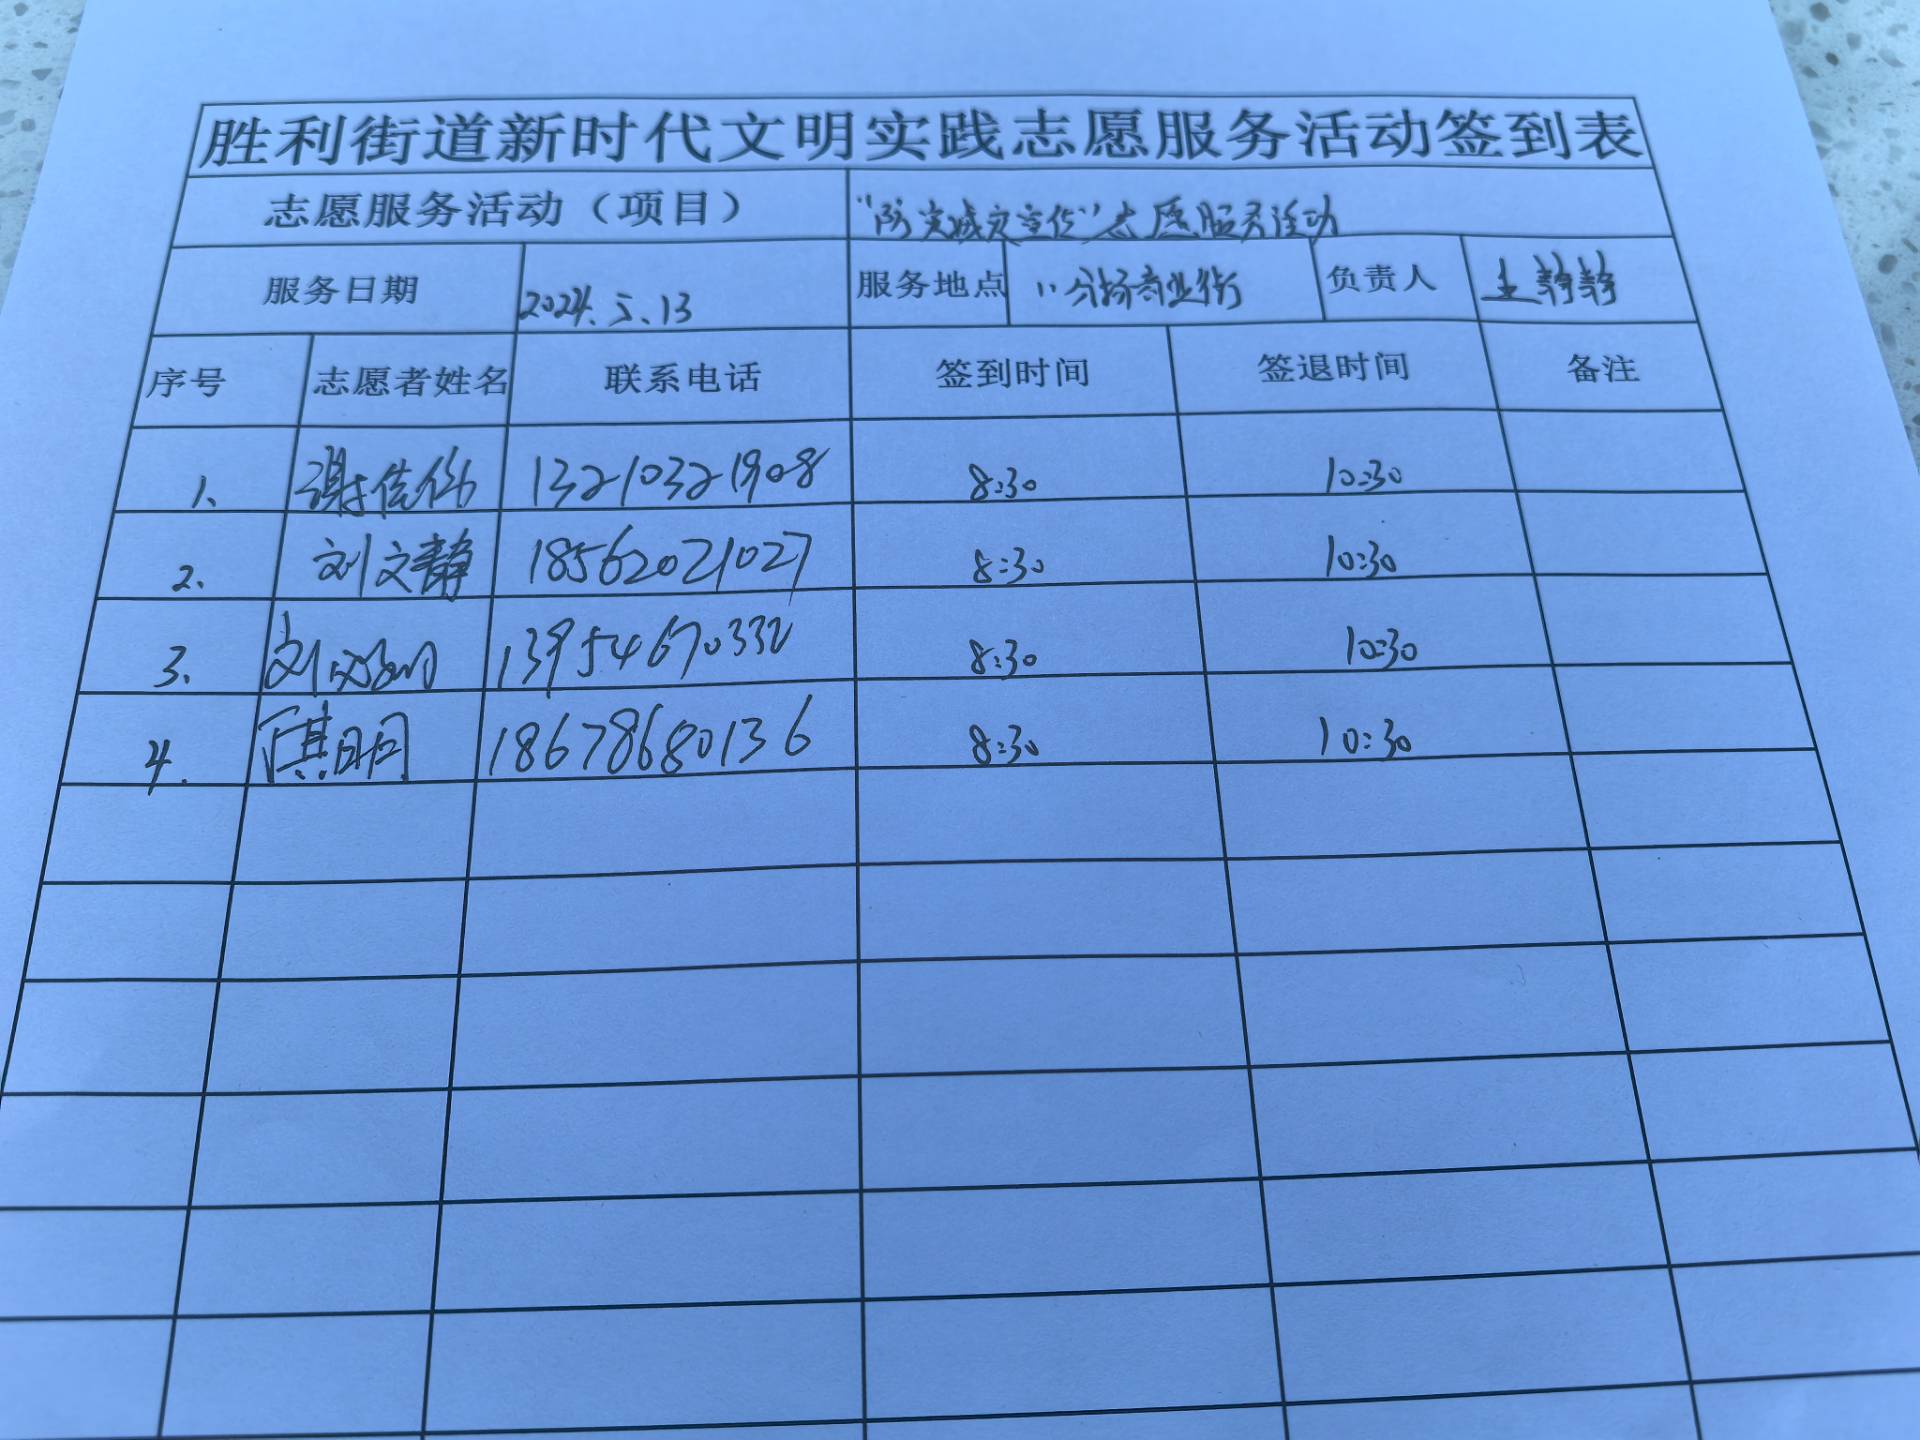 胜利街道新时代文明实践志愿服务活动签到表
志愿服务活动（项目） “防灾减灾宣传”志愿服务活动
服务日期 2024.5.13 服务地点 八分场商业街 负责人 王静静
序号 志愿者姓名 联系电话 签到时间 签退时间 备注
1. 谢佳 13210321908 8:30 10:30
2. 刘文静 18562021027 8:30 10:30
3. 刘 13954670332 8:30 10:30
4. 18678680136 8:30 10:30